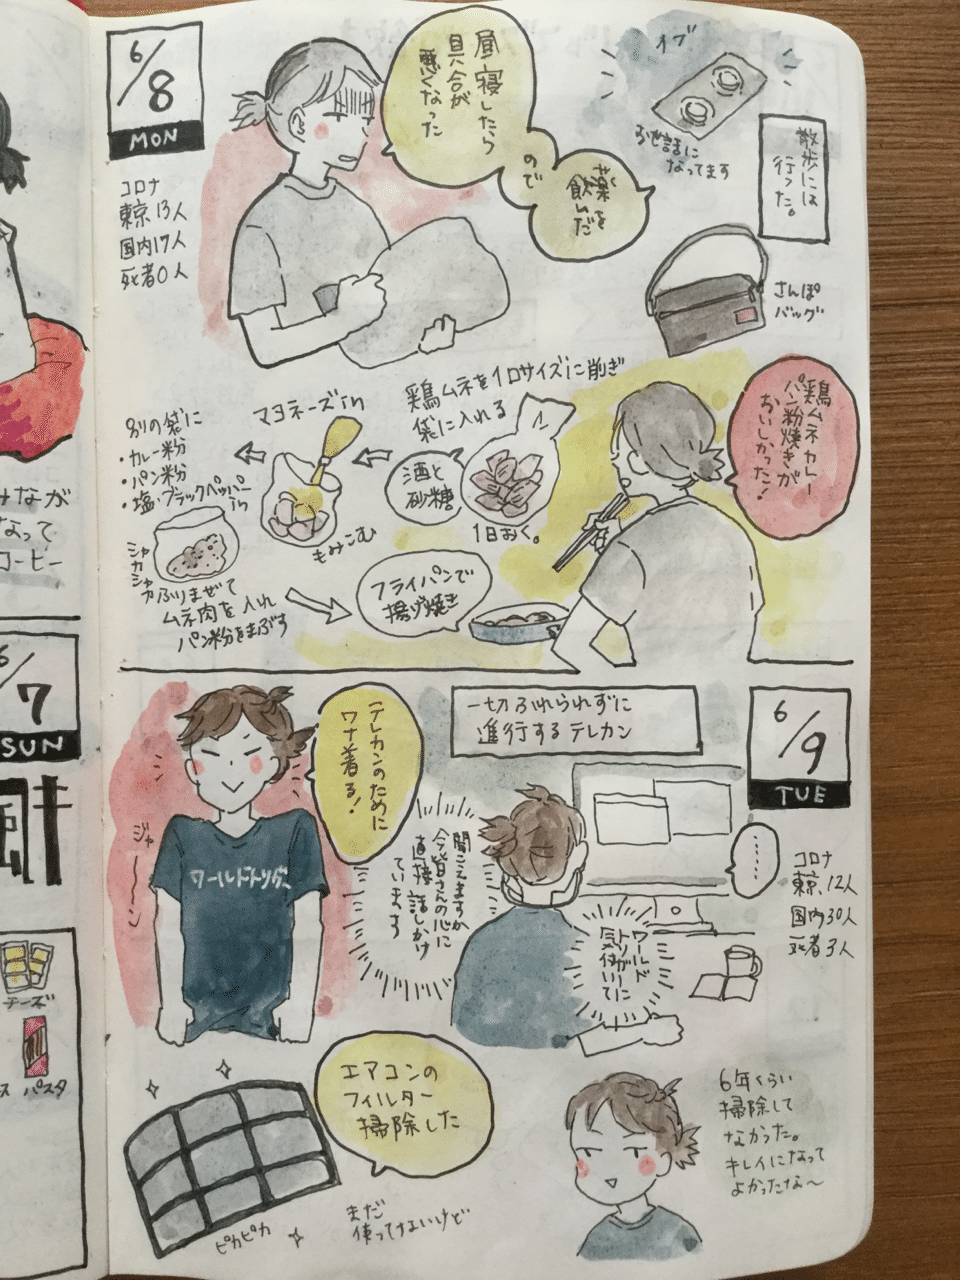 6/8
MON
コロナ
東京13人
国内17人
死者0人
昼寝したら
具合が
悪くなった
ので
薬を
飲んだ
イブ
お世話に
なってます
散歩には
行った。
さんぽ
バッグ
鶏ムネカレー
パン粉焼きが
おいしかった!
鶏ムネを1口サイズに削ぎ
袋に入れる
酒と
砂糖
1日おく。
マヨネーズin
もみこむ
別の袋に
・カレー粉
・パン粉
・塩・ブラックペッパー
in
シャカシャカ
ふりまぜて
ムネ肉を入れ
パン粉をまぶす
フライパンで
揚げ焼き
みなが
なって
コーヒー
6/7
SUN
チーズ
ス パスタ
6/9
TUE
コロナ
東京、12人
国内30人
死者3人
テレカンのために
ワナ着る!
ジャーーン
ワールドトリガー
一切ふれられずに
進行するテレカン
聞こえますか
今皆さんの心に
直接話しかけ
ています
ワールド
トリガーに
気付いて
……
エアコンの
フィルター
掃除した
ピカピカ
まだ
使ってないけど
6年くらい
掃除して
なかった。
キレイになって
よかったな〜